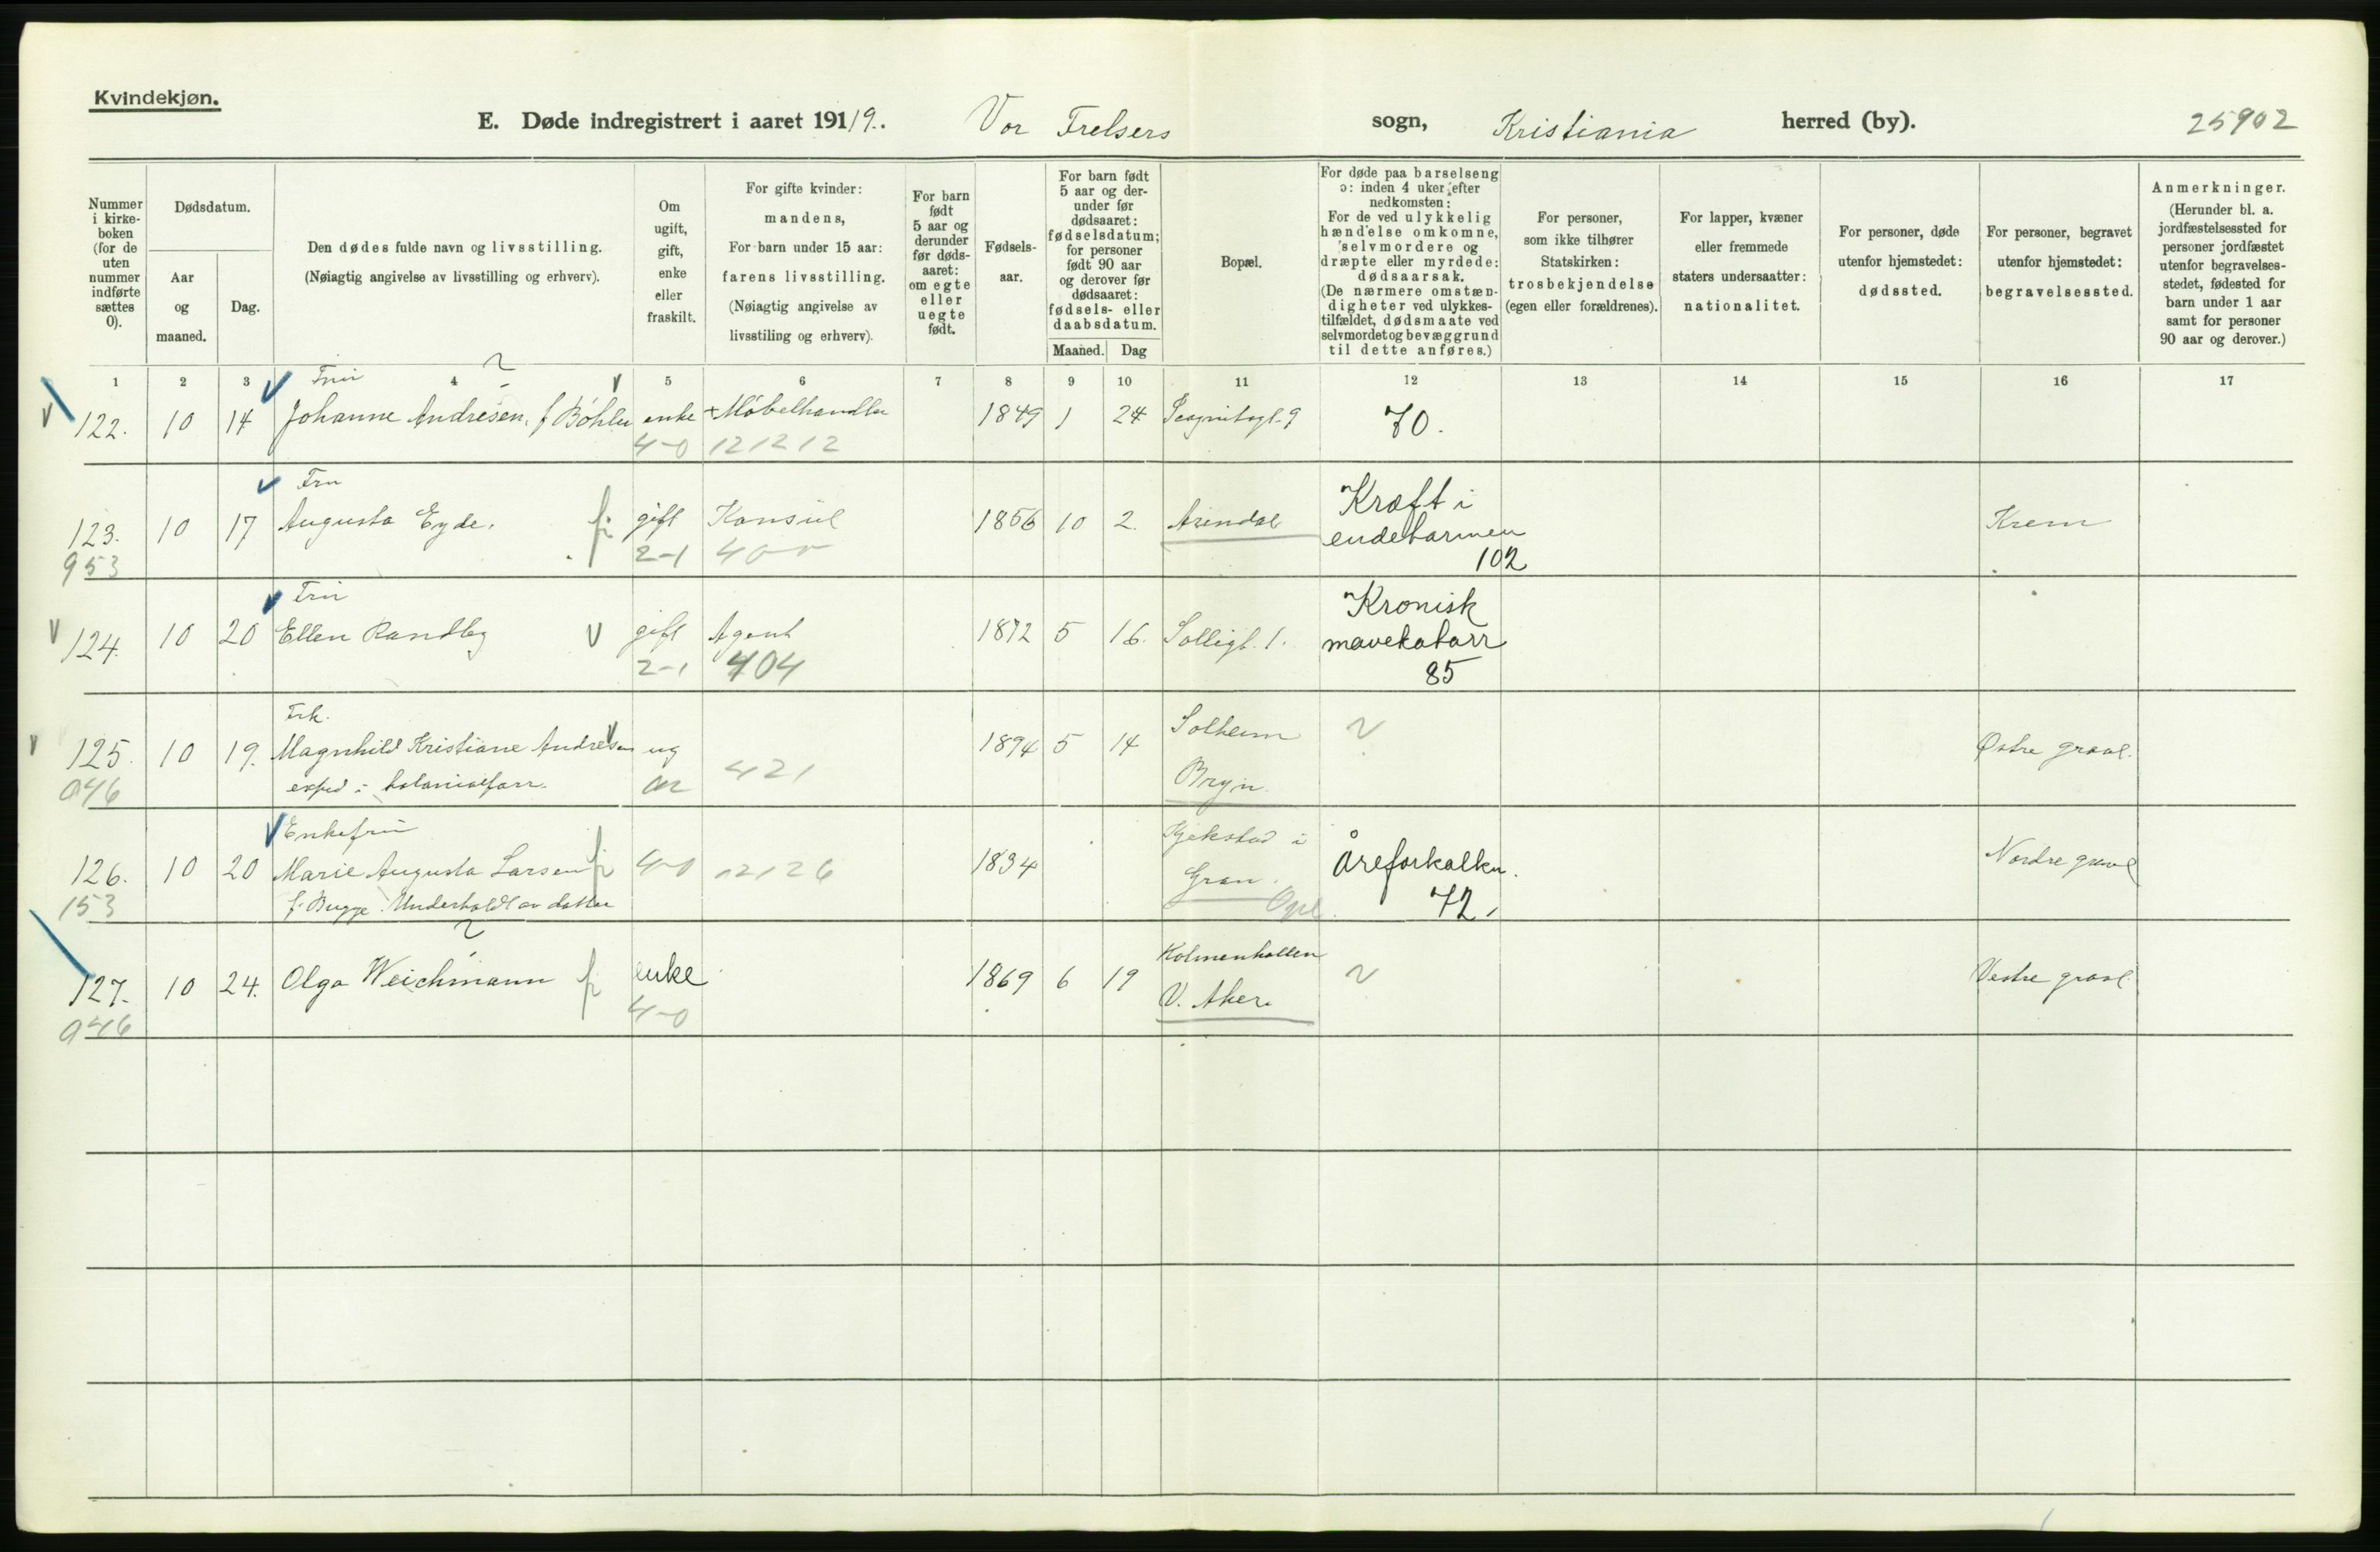 Kvindekjøn.
E. Døde indregistrert i aaret 1919. Vor Frelsers sogn, Kristiania herred (by). 25902
Nummer i kirke-boken (for de uten nummer indførte sættes 0).
Dødsdatum.
Aar og maaned.
Dag.
Den dødes fulde navn og livsstilling.
(Nøiagtig angivelse av livsstilling og erhverv).
Om ugift, gift, enke eller fraskilt.
For gifte kvinder: mandens,
For barn under 15 aar: farens livsstilling.
(Nøiagtig angivelse av livsstiling og erhverv).
For barn født 5 aar og derunder før døds-aaret: om egte eller uegte født.
Fødsels-aar.
For barn født 5 aar og der-under før dødsaaret: fødselsdatum; for personer født 90 aar og derover før dødsaaret: fødsels- eller daabsdatum.
Maaned. Dag
Bopæl.
For døde paa barselseng ɔ: inden 4 uker efter nedkomsten:
For de ved ulykkelig hændelse omkomne, selvmordere og dræpte eller myrdede: dødsaarsak.
(De nærmere omstæn-digheter ved ulykkes-tilfældet, dødsmaate ved selvmordet og bevæggrund til dette anføres.)
For personer, som ikke tilhører Statskirken: trosbekjendelse (egen eller forældrenes).
For lapper, kvæner eller fremmede staters undersaatter: nationalitet.
For personer, døde utenfor hjemstedet: dødssted.
For personer, begravet utenfor hjemstedet: begravelsessted.
Anmerkninger.
(Herunder bl. a. jordfæstelsessted for personer jordfæstet utenfor begravelses-stedet, fødested for barn under 1 aar samt for personer 90 aar og derover.)
1 2 3 4 5 6 7 8 9 10 11 12 13 14 15 16 17
Fru
122. 10 14 Johanne Andresen, f Bøhler enke + Møbelhandler 1849 1 24 70.
4-0 121212
Fru
123. 10 17 Augusta Eyde. gift Konsul 1856 10 2. Arendal Kræft i endetarmen 102 Krem
953 2-1 400
Fru
124. 10 20 Ellen Randby gift Agent 1872 5 16. Solligt. 1. Kronisk mavekatarr 85
2-1 404
Frk.
125. 10 19. Magnhild Kristiane Andresen ug 1894 5 14 Solheim Bryn. Østre gravl.
046 exped i kolonialforr. 421
Enkefru
126. 10 20 Marie Augusta Larsen 4-0 12126 1834 Gran. Opl. Åreforkalkn. 72. Nordre gravl
153 f. Bugge. Underholdt av datter
127. 10 24. Olga Weichmann enke 1869 6 19 Holmenkollen V. Aker. Vestre gravl
046 4-0